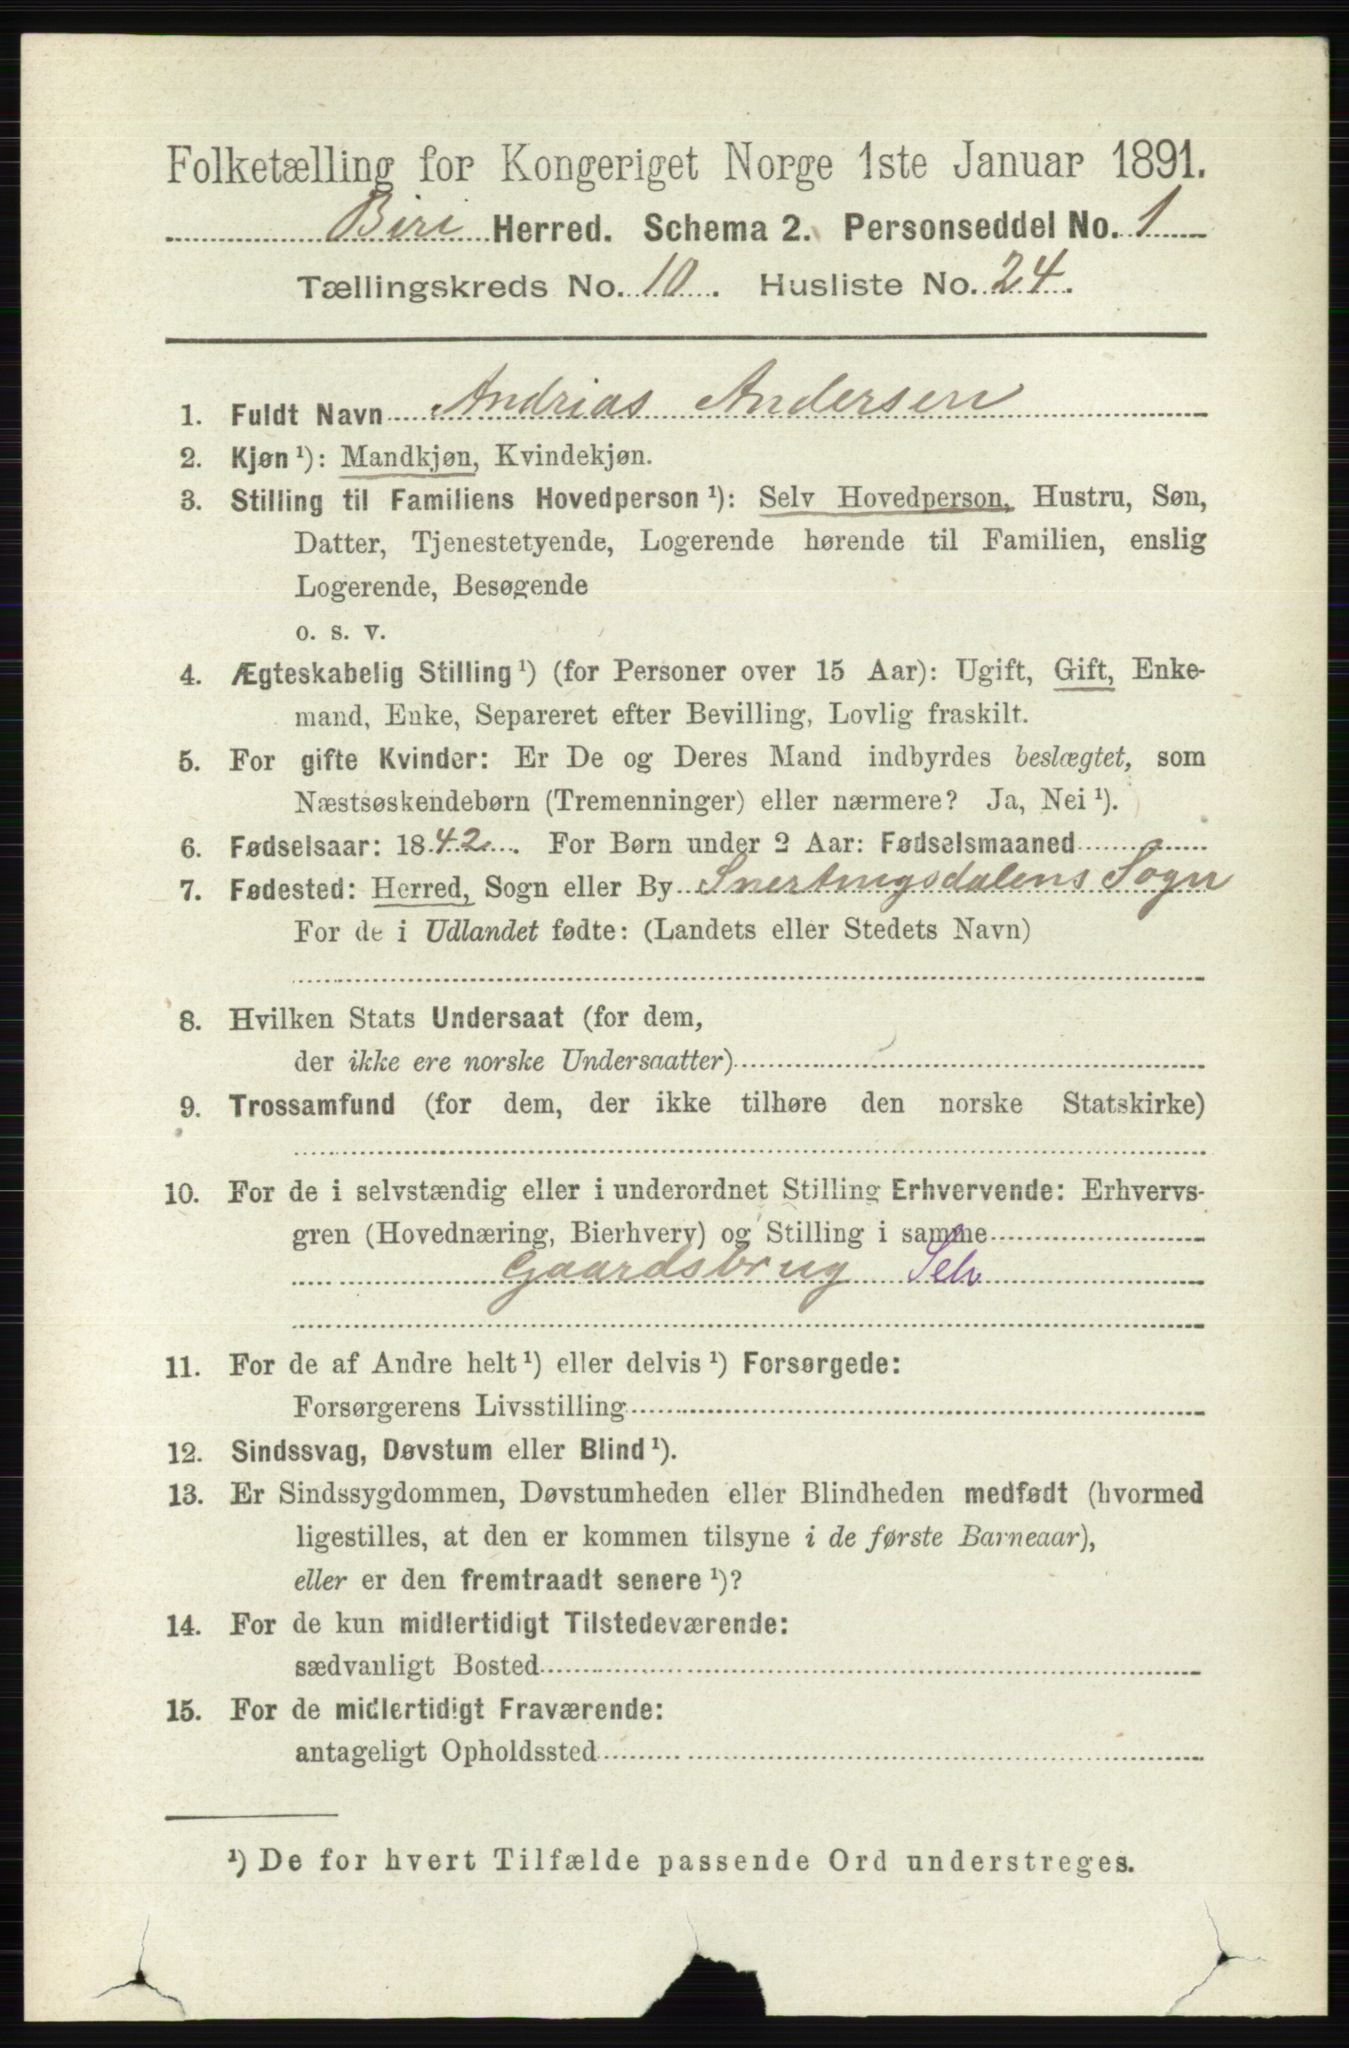 Folketælling for Kongeriget Norge 1ste Januar 1891.
Biri Herred. Schema 2. Personseddel No. 1
Tællingskreds No. 10. Husliste No. 24.
1. Fuldt Navn Andrias Andersen
2. Kjøn ¹): Mandkjøn, Kvindekjøn.
3. Stilling til Familiens Hovedperson ¹): Selv Hovedperson, Hustru, Søn,
Datter, Tjenestetyende, Logerende hørende til Familien, enslig
Logerende, Besøgende
o. s. v.
4. Ægteskabelig Stilling ¹) (for Personer over 15 Aar): Ugift, Gift, Enke-
mand, Enke, Separeret efter Bevilling, Lovlig fraskilt.
5. For gifte Kvinder: Er De og Deres Mand indbyrdes beslægtet, som
Næstsøskendebørn (Tremenninger) eller nærmere? Ja, Nei ¹).
6. Fødselsaar: 1842. For Børn under 2 Aar: Fødselsmaaned
7. Fødested: Herred, Sogn eller By Snertingsdalens Sogn
For de i Udlandet fødte: (Landets eller Stedets Navn)
8. Hvilken Stats Undersaat (for dem,
der ikke ere norske Undersaatter)
9. Trossamfund (for dem, der ikke tilhøre den norske Statskirke)
10. For de i selvstændig eller i underordnet Stilling Erhvervende: Erhvervs-
gren (Hovednæring, Bierhverv) og Stilling i samme
Gaardsbrug Selv
11. For de af Andre helt ¹) eller delvis ¹) Forsørgede:
Forsørgerens Livsstilling
12. Sindssvag, Døvstum eller Blind ¹).
13. Er Sindssygdommen, Døvstumheden eller Blindheden medfødt (hvormed
ligestilles, at den er kommen tilsyne i de første Barneaar),
eller er den fremtraadt senere ¹)?
14. For de kun midlertidigt Tilstedeværende:
sædvanligt Bosted
15. For de midlertidigt Fraværende:
antageligt Opholdssted
¹) De for hvert Tilfælde passende Ord understreges.